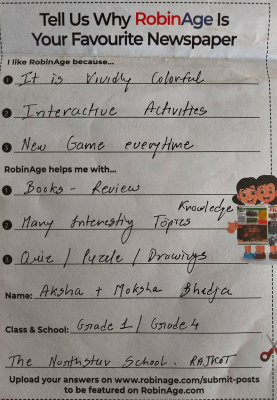 Tell Us Why RobinAge Is
Your Favourite Newspaper
I like RobinAge because...
1 It is Vividly Colorful
2 Interactive Activities
3 New Game everytime
RobinAge helps me with...
1 Books - Review
Knowledge
2 Many Interesting Topics
3 Quiz / Puzzle / Drawings
Name: Aksha + Moksha Bhedja
Class & School: Grade 1 / Grade 4
The Northstar School. RAJKOT
Upload your answers on www.robinage.com/submit-posts
to be featured on RobinAge.com